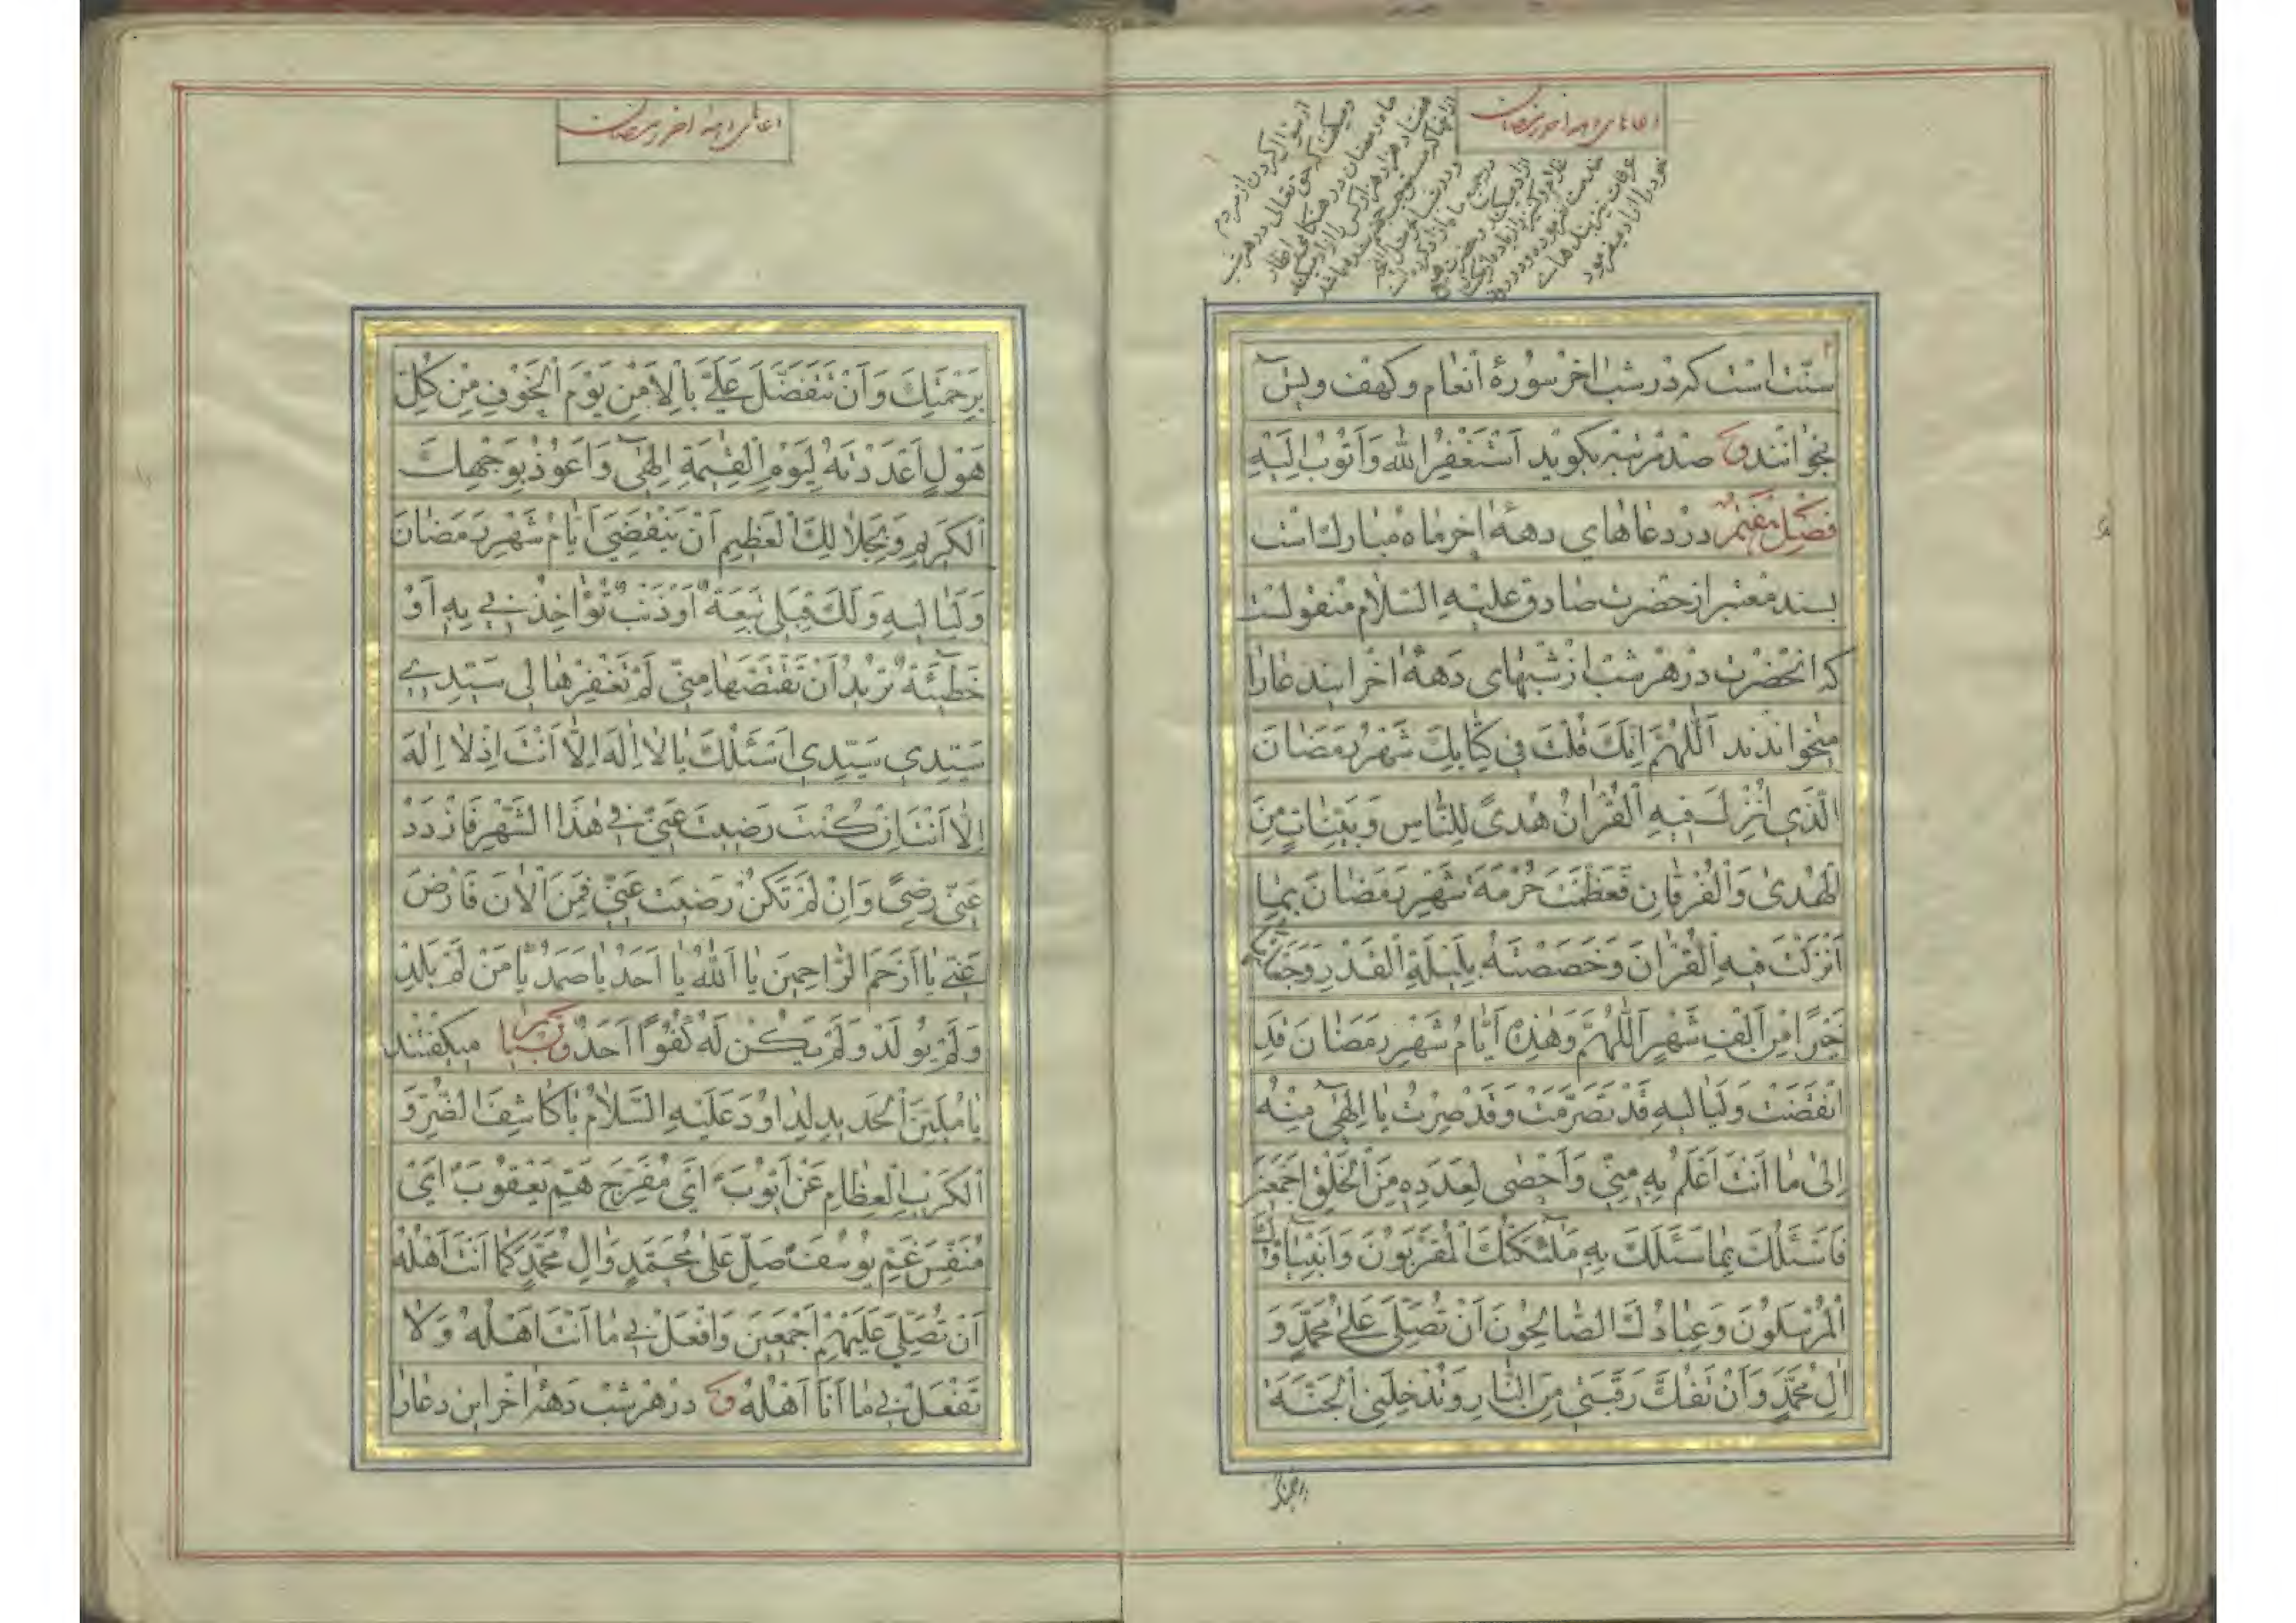 سنّت است که در شب اخر سورهٔ انعام و کهف و یس
بخوانند و صد مرتبه بکوید اَسْتَغْفِرُ اللهَ وَاَتُوبُ اِلَیْهِ
فصل هفتم در دعاهای دههٔ اخر ماه مبارک است
بسند معتبر از حضرت صادق علیه السلام منقولست
که انحضرت در هر شب از شبهای دههٔ اخر ایندعا را
میخواندند اَللّهُمَّ اِنَّكَ قُلْتَ فِی كِتَابِكَ شَهْرُ رَمَضَانَ
الَّذِی اُنْزِلَ فِیهِ الْقُرْانُ هُدیً لِلنَّاسِ وَبَیِّنَاتٍ مِنَ
الْهُدیٰ وَالْفُرْقَانِ فَعَظَّمْتَ حُرْمَةَ شَهْرِ رَمَضَانَ بِمَا
اَنْزَلْتَ فِیهِ الْقُرْانَ وَخَصَصْتَهُ بِلَیْلَةِ الْقَدْرِ وَجَعَلْتَهَا
خَیْرًا مِنْ اَلْفِ شَهْرٍ اَللّهُمَّ وَهٰذِهِ اَیَّامُ شَهْرِ رَمَضَانَ قَدِ
انْقَضَتْ وَلَیَالِیهِ قَدْ تَصَرَّمَتْ وَقَدْ صِرْتُ یَا اِلٰهِی مِنْهُ
اِلیٰ مَا اَنْتَ اَعْلَمُ بِهِ مِنِّی وَاَحْصیٰ لِعَدَدِهِ مِنَ الْخَلْقِ اَجْمَعِینَ
فَاَسْئَلُكَ بِمَا سَئَلَكَ بِهِ مَلٰئِكَتُكَ الْمُقَرَّبُونَ وَاَنْبِیَاؤُكَ
الْمُرْسَلُونَ وَعِبَادُكَ الصَّالِحُونَ اَنْ تُصَلِّیَ عَلیٰ مُحَمَّدٍ وَ
الِ مُحَمَّدٍ وَاَنْ تَفُكَّ رَقَبَتِی مِنَ النَّارِ وَتُدْخِلَنِی الْجَنَّةَ
برحمتك
بِرَحْمَتِكَ وَاَنْ تَتَفَضَّلَ عَلَیَّ بِالْاَمْنِ یَوْمَ الْخَوْفِ مِنْ كُلِّ
هَوْلٍ اَعْدَدْتَهُ لِیَوْمِ الْقِیٰمَةِ اِلٰهِی وَاَعُوذُ بِوَجْهِكَ
الْكَرِیمِ وَبِجَلَالِكَ الْعَظِیمِ اَنْ یَنْقَضِیَ اَیَّامُ شَهْرِ رَمَضَانَ
وَلَیَالِیهِ وَلَكَ قِبَلِی تَبِعَةٌ اَوْ ذَنْبٌ تُؤَاخِذُنِی بِهِ اَوْ
خَطِیئَةٌ تُرِیدُ اَنْ تَقْتَصَّهَا مِنِّی لَمْ تَغْفِرْهَا لِی سَیِّدِی
سَیِّدِی سَیِّدِی اَسْئَلُكَ یَا لَا اِلٰهَ اِلَّا اَنْتَ اِذْ لَا اِلٰهَ
اِلَّا اَنْتَ اِنْ كُنْتَ رَضِیتَ عَنِّی فِی هٰذَا الشَّهْرِ فَازْدَدْ
عَنِّی رِضیً وَاِنْ لَمْ تَكُنْ رَضِیتَ عَنِّی فَمِنَ الْاٰنَ فَارْضَ
عَنِّی یَا اَرْحَمَ الرَّاحِمِینَ یَا اَللهُ یَا اَحَدُ یَا صَمَدُ یَا مَنْ لَمْ یَلِدْ
وَلَمْ یُولَدْ وَلَمْ یَكُنْ لَهُ كُفُوًا اَحَدٌ و بسیار میکفتند
یَا مُلَیِّنَ الْحَدِیدِ لِدَاوُدَ عَلَیْهِ السَّلَامُ یَا كَاشِفَ الضُّرِّ وَ
الْكُرَبِ الْعِظَامِ عَنْ اَیُّوبَ اَیْ مُفَرِّجَ هَمِّ یَعْقُوبَ اَیْ
مُنَفِّسَ غَمِّ یُوسُفَ صَلِّ عَلیٰ مُحَمَّدٍ وَالِ مُحَمَّدٍ كَمَا اَنْتَ اَهْلُهُ
اَنْ تُصَلِّیَ عَلَیْهِمْ اَجْمَعِینَ وَافْعَلْ بِی مَا اَنْتَ اَهْلُهُ وَلَا
تَفْعَلْ بِی مَا اَنَا اَهْلُهُ و در هر شب دههٔ اخر این دعا را